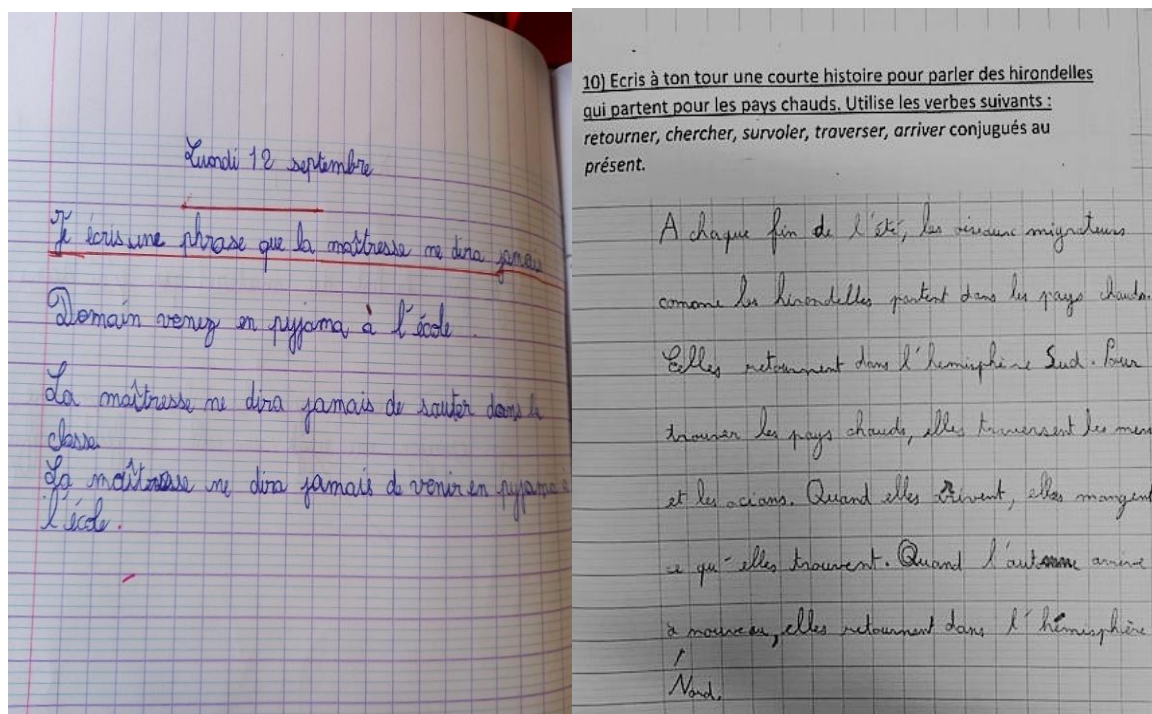 Lundi 12 septembre
Je écris une phrase que la maîtresse ne dira jamais
Demain venez en pyjama à l'école.
La maîtresse ne dira jamais de sauter dans la
classe
La maîtresse ne dira jamais de venir en pyjama à
l'école.
10) Ecris à ton tour une courte histoire pour parler des hirondelles
qui partent pour les pays chauds. Utilise les verbes suivants :
retourner, chercher, survoler, traverser, arriver conjugués au
présent.
A chaque fin de l'été, les oiseaux migrateurs
comme les hirondelles partent dans les pays chauds.
Elles retournent dans l'hemisphère Sud. Pour
trouver les pays chauds, elles traversent les mers
et les ocians. Quand elles arrivent, elles mangent
ce qu'elles trouvent. Quand l'automne arrive
à nouveau, elles retournent dans l'hémisphère
Nord.